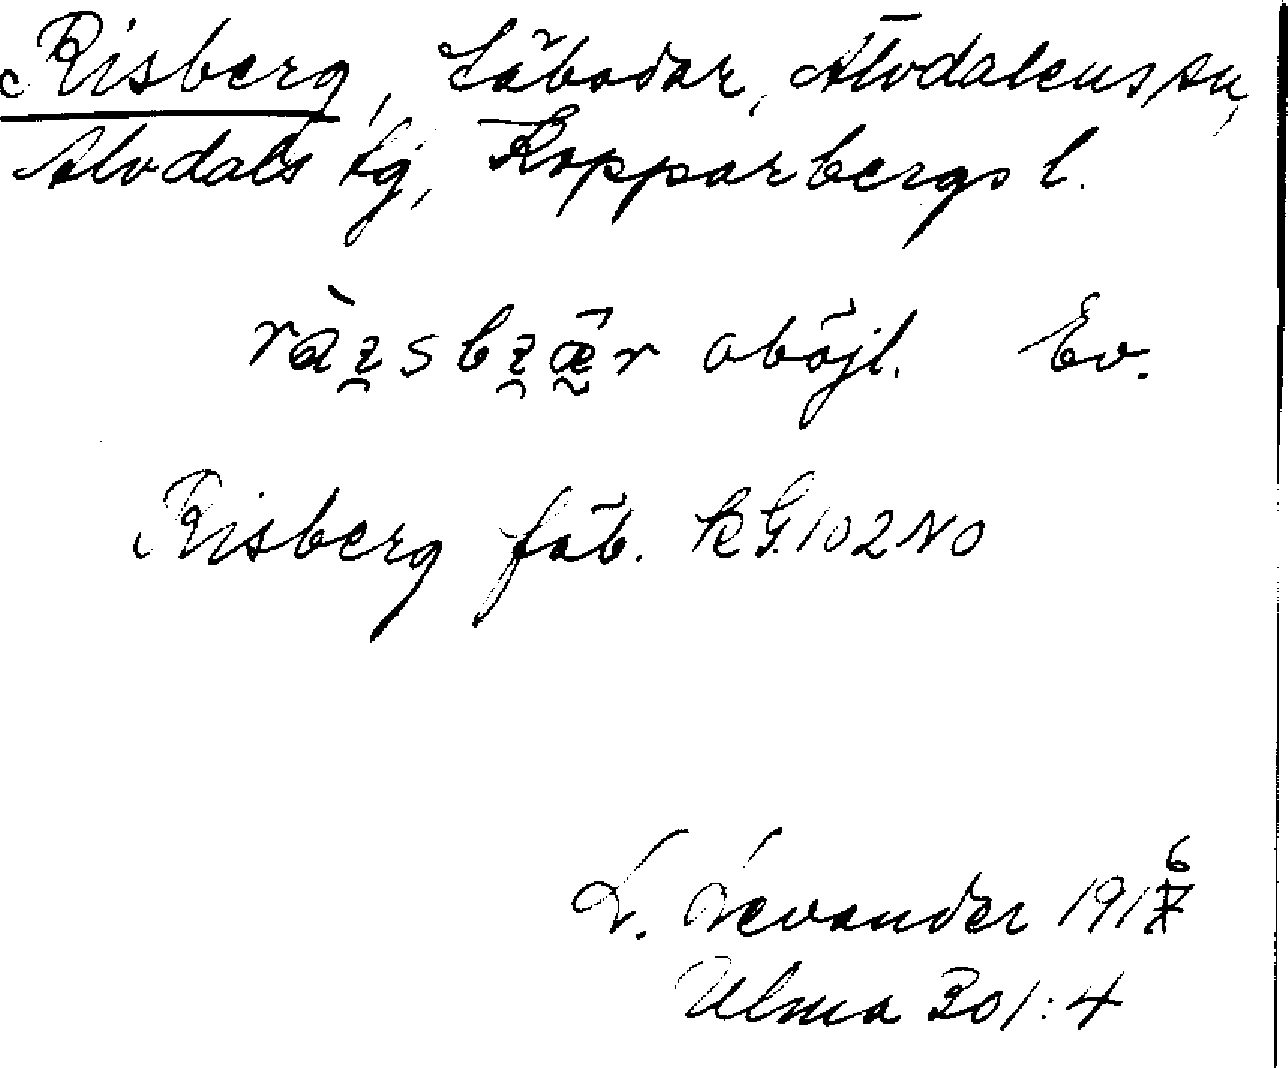 Risberg, Fäbodar, Älvdalens sn,
Älvdals tg, Kopparbergs l.
oböjl. Ev.
Risberg fäb. RG.102NO
L. Levander 1916
Ulma 301:4